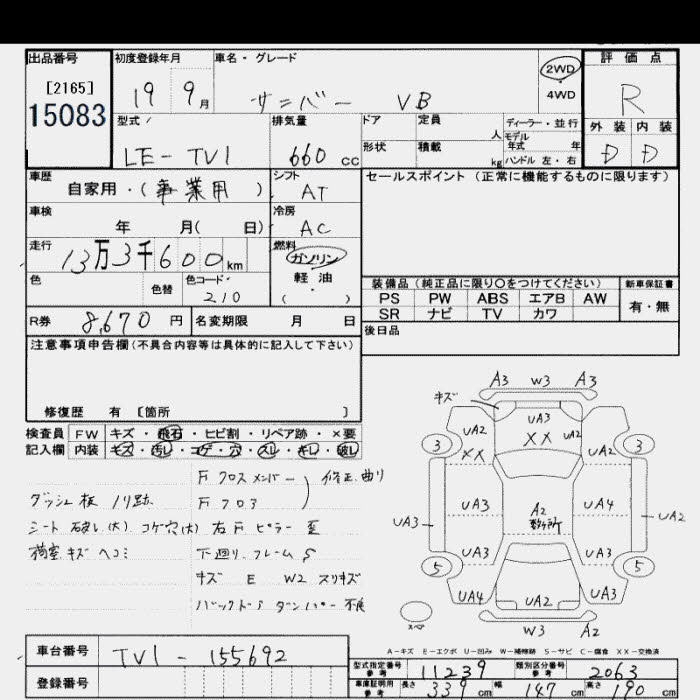 出品番号
[2165]
15083
初度登録年月
19 9月
車名・グレード
サニバー VB
2WD
・
4WD
評価点
R
外装 内装
D D
型式
LE-TV1
排気量
660 cc
ドア
形状
定員 人
積載 kg
ディーラー・並行
モデル
年式 年
ハンドル 左・右
車歴
自家用・(事業用)
シフト
AT
車検 年 月(日)
冷房
AC
走行
13万3千600km
燃料
ガソリン
軽油
( )
色
色替
色コード
210
R券 8,670 円
名変期限 月 日
セールスポイント (正常に機能するものに限ります)
装備品 (純正品に限り○をつけてください)
PS PW ABS エアB AW
SR ナビ TV カワ
新車保証書
有・無
後日品
注意事項申告欄(不具合内容等は具体的に記入して下さい)
修復歴 有 [箇所 ]
検査員 FW キズ・飛石・ヒビ割・リペア跡・×要
記入欄 内装 キズ・汚レ・コゲ・穴・スレ・キレ・破レ
F クロスメンバー 修正曲り
F フロア
ダッシュ板 ノリ跡
シート 破レ(大) コゲ穴(大)
右F ピラー 歪
荷室 キズ ヘコミ
下廻り、フレーム S
キズ E W2 スリキズ
バックドア ダンパー 不良
A3 W3 A3
キズ
UA3
UA2 XX UA2
XX
3 3
UA3 UA4
UA3 UA2
A2
数ヶ所
UA3 UA3
5 5
UA4 UA2 UA3
スペア
W3 A2
A-キズ E-エクボ U-凹み W-補修跡 S-サビ C-腐食 XX-交換済
車台番号 TV1-155692
登録番号
型式指定番号
参考
11239
類別区分番号
参考
2063
車庫証明用
参考
長さ 339 cm 幅 147 cm 高さ 190 cm